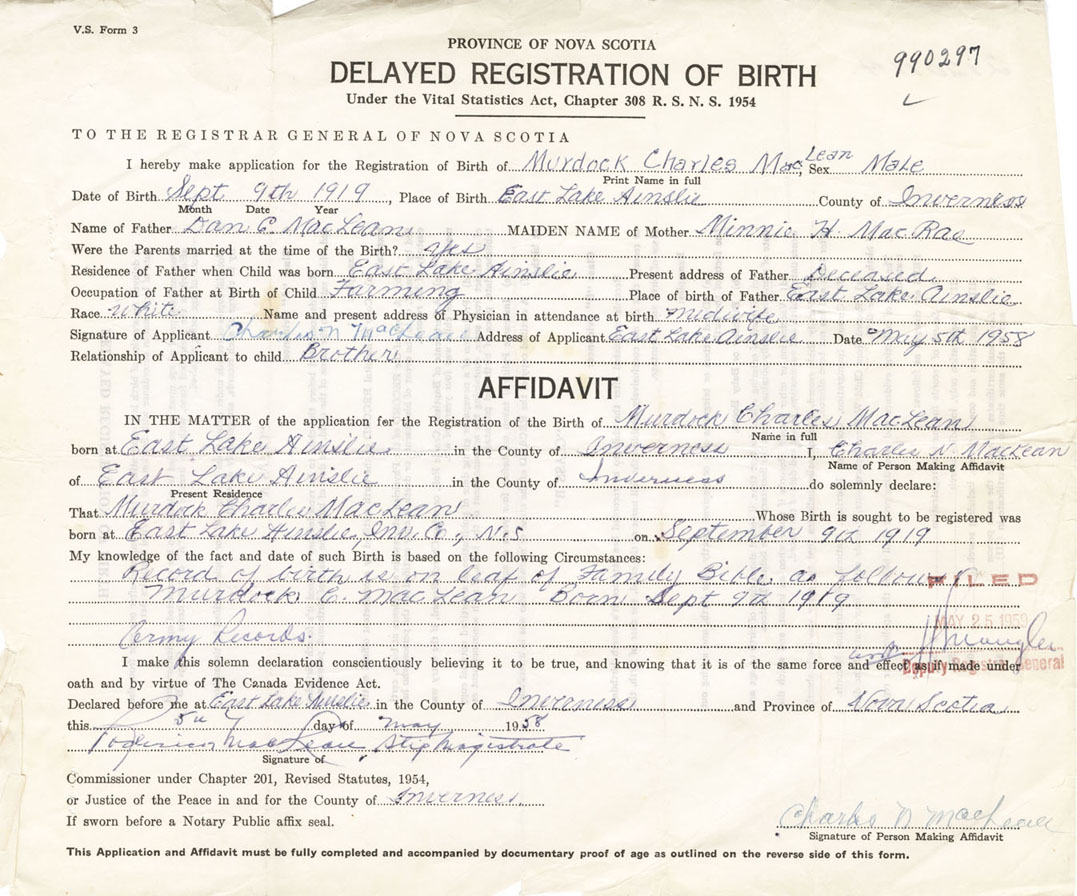 V.S. Form 3
PROVINCE OF NOVA SCOTIA
990297
DELAYED REGISTRATION OF BIRTH
Under the Vital Statistics Act, Chapter 308 R. S. N. S. 1954
TO THE REGISTRAR GENERAL OF NOVA SCOTIA
I hereby make application for the Registration of Birth of Murdock Charles MacLean Sex Male
Print Name in full
Date of Birth Sept 9th 1919, Place of Birth East Lake Ainslie County of Inverness
Month Date Year
Name of Father Dan C. MacLean MAIDEN NAME of Mother Minnie H MacRae
Were the Parents married at the time of the Birth? yes
Residence of Father when Child was born East Lake Ainslie Present address of Father Deceased
Occupation of Father at Birth of Child Farming Place of birth of Father East Lake Ainslie
Race White Name and present address of Physician in attendance at birth midwife
Signature of Applicant Charles N MacLean Address of Applicant East Lake Ainslie Date May 5th 1958
Relationship of Applicant to child Brother
AFFIDAVIT
IN THE MATTER of the application for the Registration of the Birth of Murdock Charles MacLean
Name in full
born at East Lake Ainslie in the County of Inverness I, Charles N. MacLean
Name of Person Making Affidavit
of East Lake Ainslie in the County of Inverness do solemnly declare:
Present Residence
That Murdock Charles MacLean Whose Birth is sought to be registered was
born at East Lake Ainslie, Inv. Co., N.S on September 9th 1919
My knowledge of the fact and date of such Birth is based on the following Circumstances:
Record of birth is on leaf of Family Bible as follows
FILED
Murdock C. MacLean Born Sept 9th 1919
MAY 25 1959
Army Records.
I make this solemn declaration conscientiously believing it to be true, and knowing that it is of the same force and effect as if made under
Deputy Registrar General
oath and by virtue of The Canada Evidence Act.
Declared before me at East Lake Ainslie in the County of Inverness and Province of Nova Scotia
this 5th day of May 1958
MacLean Stip Magistrate
Signature of
Commissioner under Chapter 201, Revised Statutes, 1954,
or Justice of the Peace in and for the County of Inverness
If sworn before a Notary Public affix seal.
Charles N MacLean
Signature of Person Making Affidavit
This Application and Affidavit must be fully completed and accompanied by documentary proof of age as outlined on the reverse side of this form.